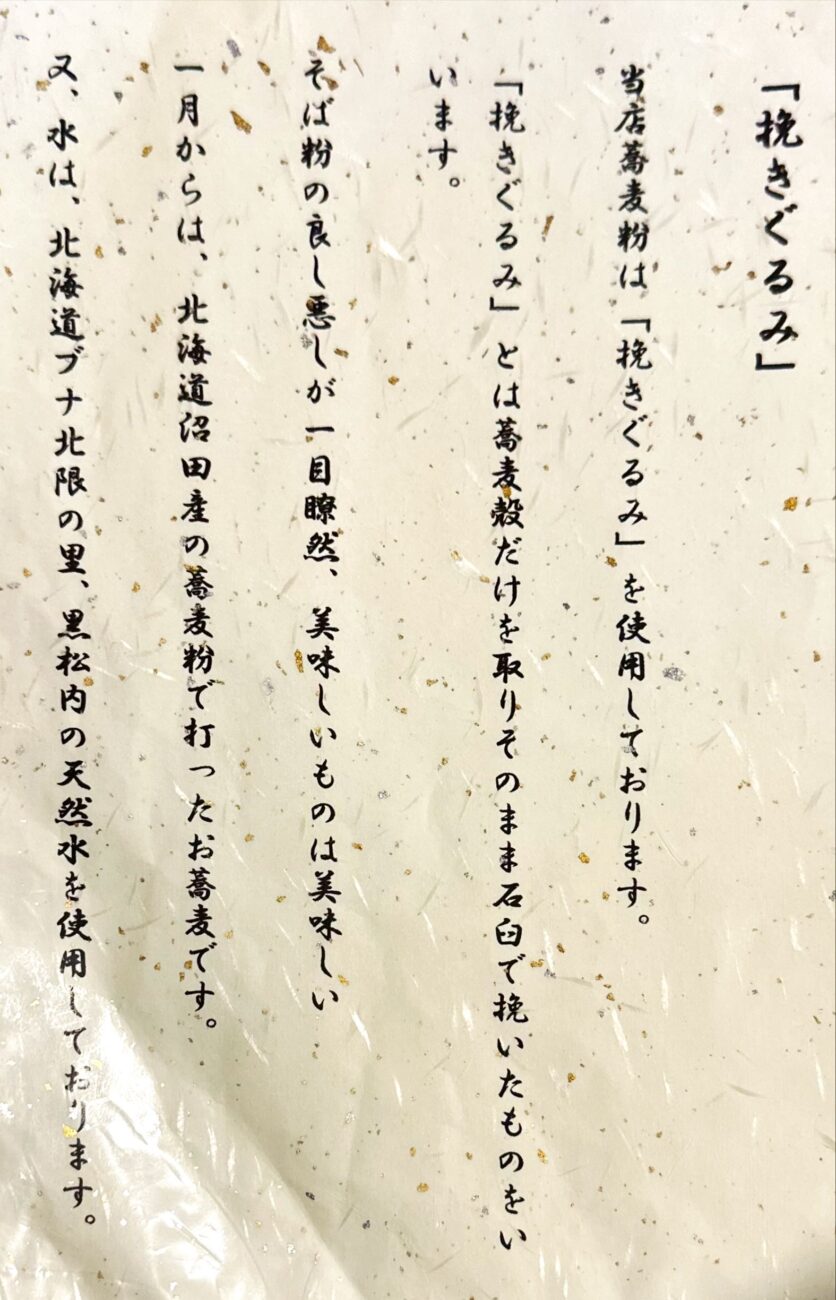 「挽きぐるみ」
当店蕎麦粉は「挽きぐるみ」を使用しております。
「挽きぐるみ」とは蕎麦殻だけを取りそのまま石臼で挽いたものをい
います。
そば粉の良し悪しが一目瞭然、美味しいものは美味しい
一月からは、北海道沼田産の蕎麦粉で打ったお蕎麦です。
又、水は、北海道ブナ北限の里、黒松内の天然水を使用しております。